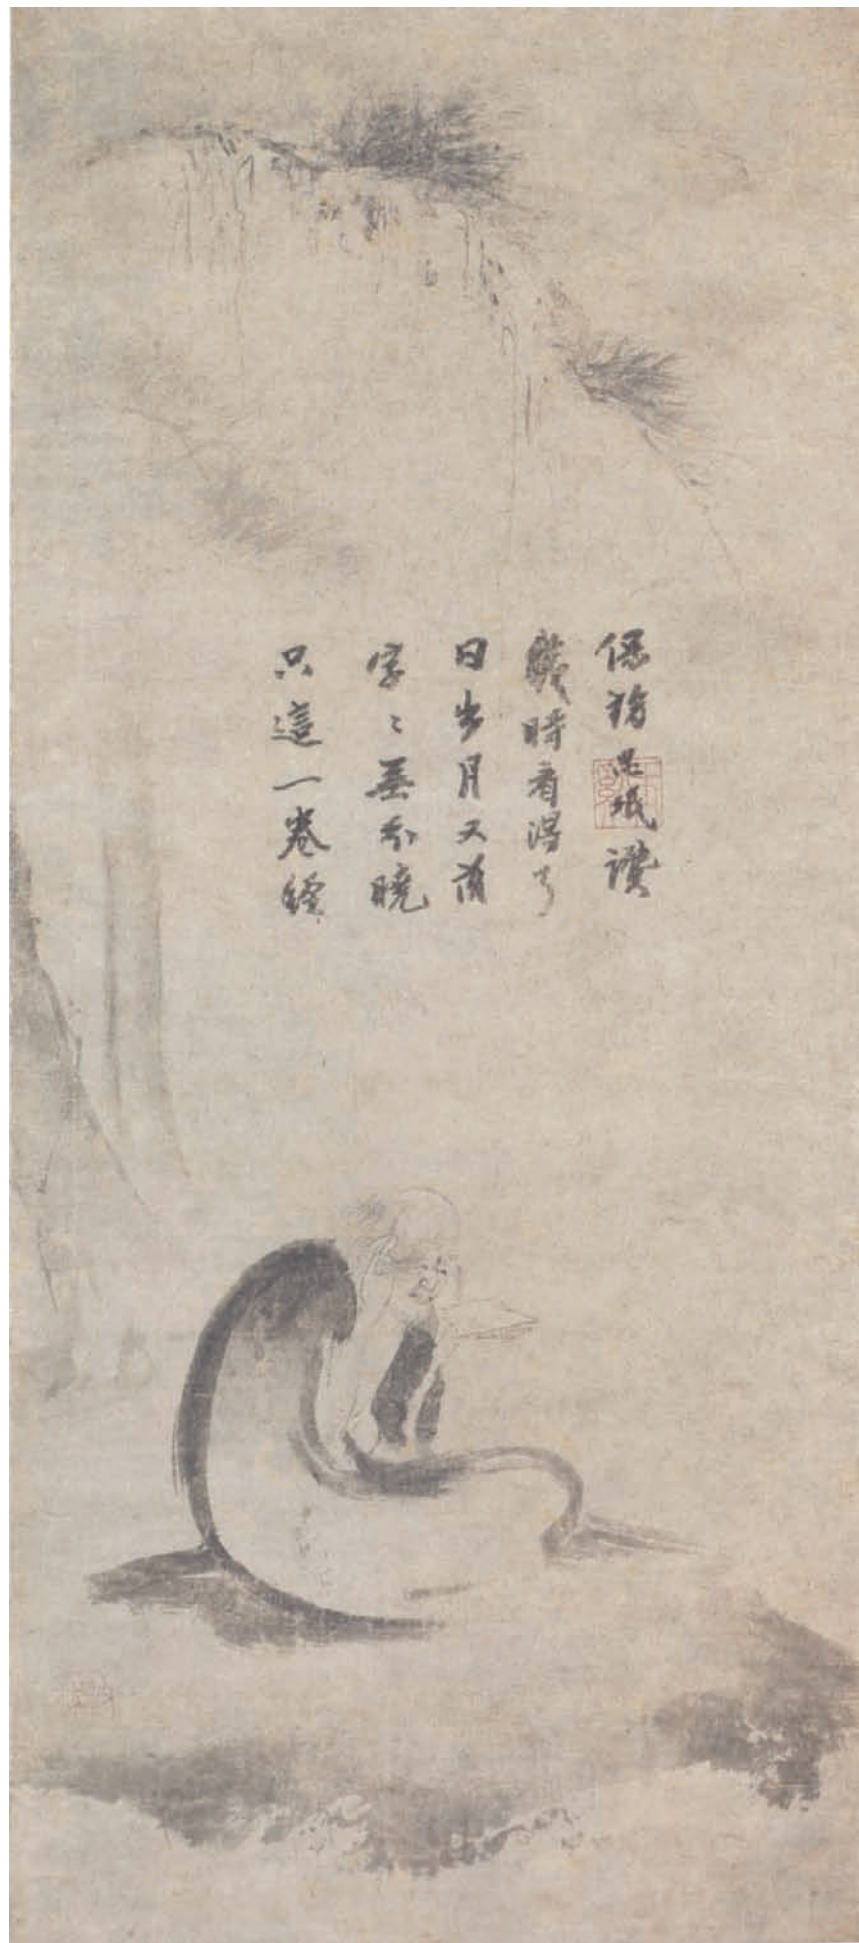 只這一卷經
字〻無分曉
日出月又落
幾時看得了
保 珉 讚